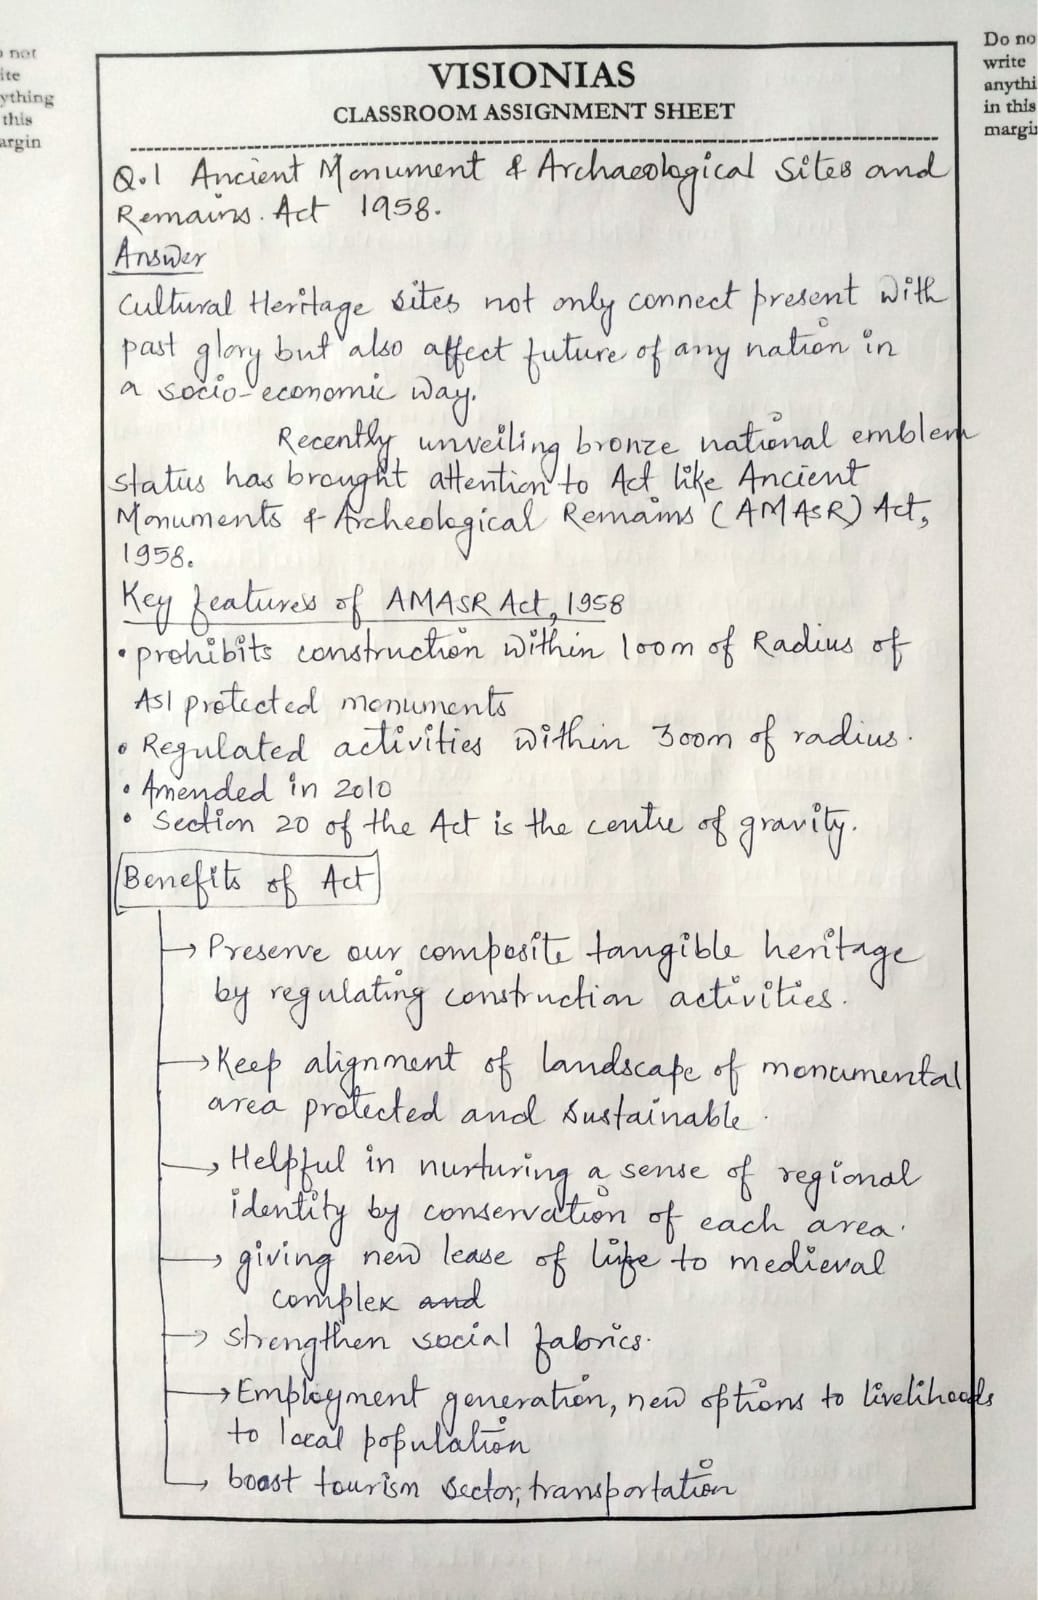 Do no
write
anythi
in this
margin
o not
ite
ything
this
argin
VISIONIAS
CLASSROOM ASSIGNMENT SHEET
Q.1 Ancient Monument & Archaeological Sites and
Remains. Act 1958.
Answer
Cultural Heritage sites not only connect present with
past glory but also affect future of any nation in
a socio-economic way.
Recently unveiling bronze national emblem
status has brought attention to Act like Ancient
Monuments & Archeological Remains (AMASR) Act,
1958.
Key features of AMASR Act, 1958
• prohibits construction within 100m of Radius of
ASI protected monuments
• Regulated activities within 300m of radius.
• Amended in 2010
• Section 20 of the Act is the centre of gravity.
Benefits of Act
→ Preserve our composite tangible heritage
by regulating construction activities.
→ Keep alignment of landscape of monumental
area protected and sustainable.
→ Helpful in nurturing a sense of regional
identity by conservation of each area.
→ giving new lease of life to medieval
complex and
→ strengthen social fabrics.
→ Employment generation, new options to livelihoods
to local population
→ boost tourism sector, transportation